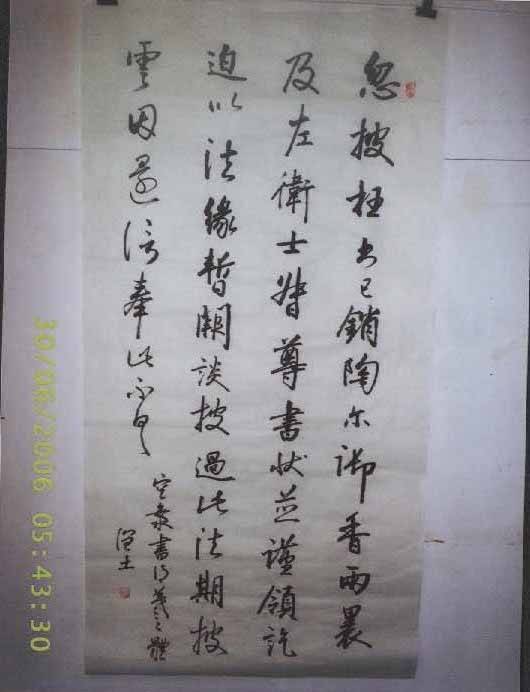 忽披枉书已銷陶尓御香兩裹
及左衛士督尊書状並謹領訖
迫以法緣暫闕談披過此法期披
雲因還信奉此不具
空海書得羲之體
30/06/2006 05:43:30